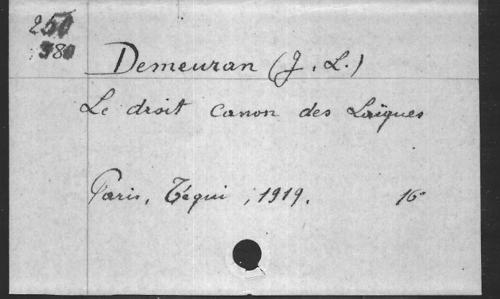 250
380
Demeuran (J. L.)
Le droit canon des Laïques
Paris, Téqui, 1919. 16°